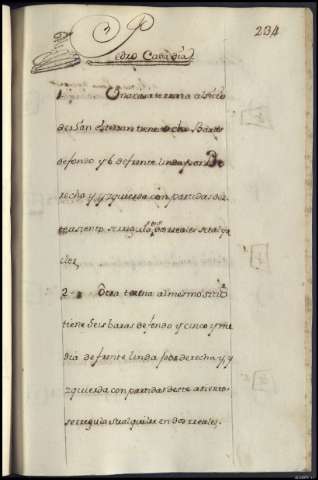 234
Pedro Candía
1 Una casa terrena al sitio
de San esteban tiene ocho Baras
de fondo y 6 de frente linda por De
recha y yzquierda con partidas de
este asiento se regula en reales su alqui
ler,
2 Otra terrena al mesmo sitio
tiene seis baras de fondo y cinco y me
dia de frente linda por derecha y y
zquierda con partidas deste asiento
se regula su alquiler en dos reales.